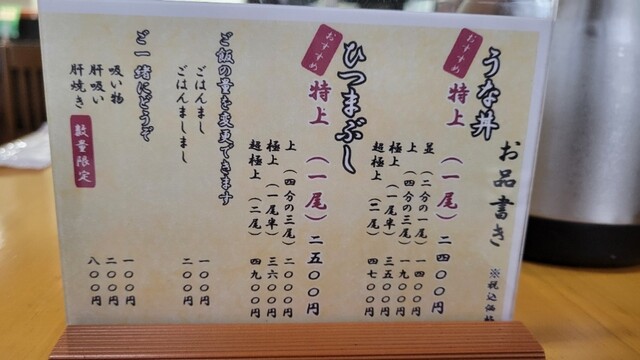 お品書き ※税込価格
うな丼
おすすめ 特上 (一尾) 二四〇〇円
並 (二分の一尾) 一四〇〇円
上 (四分の三尾) 一九〇〇円
極上 (一尾半) 三五〇〇円
超極上 (二尾) 四七〇〇円
ひつまぶし
おすすめ 特上 (一尾) 二五〇〇円
上 (四分の三尾) 二〇〇〇円
極上 (一尾半) 三六〇〇円
超極上 (二尾) 四九〇〇円
ご飯の量を変更できます
ごはんまし 一〇〇円
ごはんましまし 二〇〇円
ご一緒にどうぞ
吸い物 一〇〇円
肝吸い 二〇〇円
肝焼き 数量限定 八〇〇円